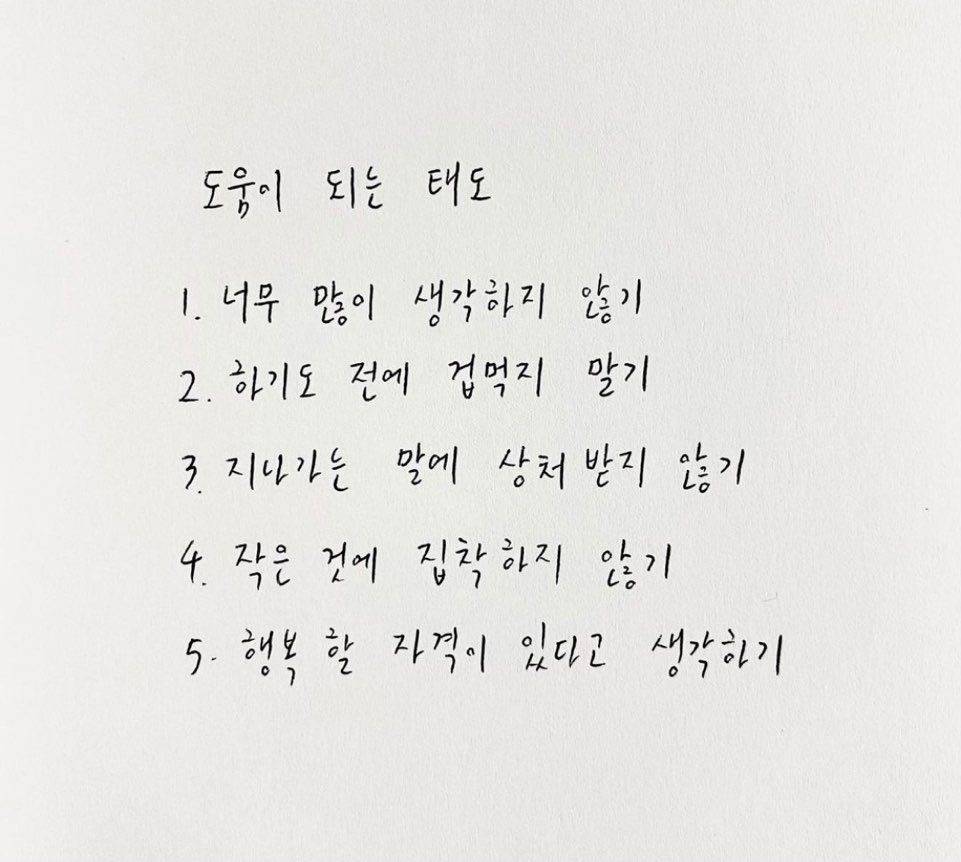 도움이 되는 태도
1. 너무 많이 생각하지 않기
2. 하기도 전에 겁먹지 말기
3. 지나가는 말에 상처 받지 않기
4. 작은 것에 집착하지 않기
5. 행복 할 자격이 있다고 생각하기